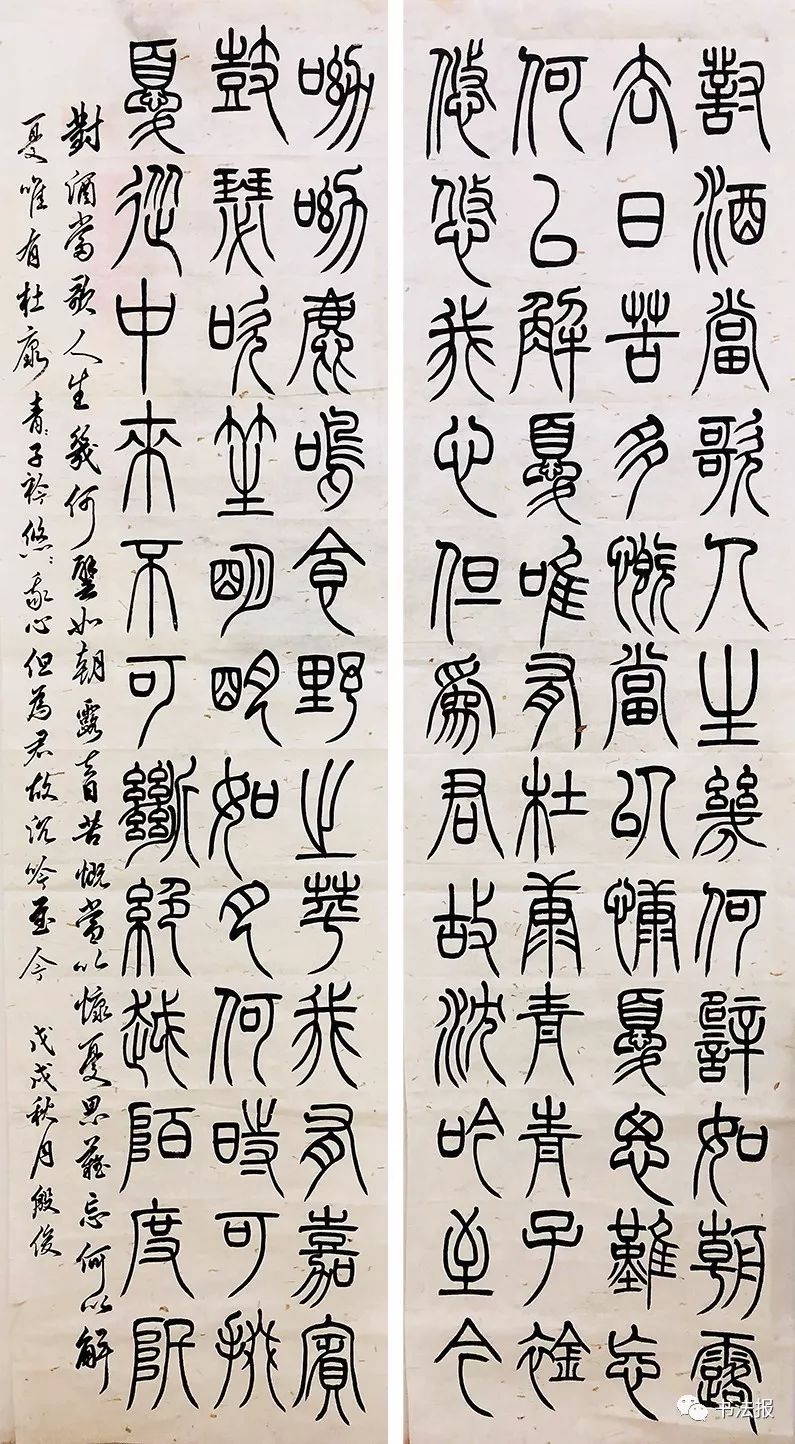 對酒當歌人生幾何譬如朝露
去日苦多慨當以慷憂思難忘
何以解憂唯有杜康青青子衿
悠悠我心但為君故沈吟至今
呦呦鹿鳴食野之苹我有嘉賓
鼓瑟吹笙明明如月何時可掇
憂從中來不可斷絕越陌度阡
對酒當歌人生幾何譬如朝露去日苦慨當以慷憂思難忘何以解
憂唯有杜康青:子衿悠:我心但為君故沉吟至今 戊戌秋月殷俊
书法报